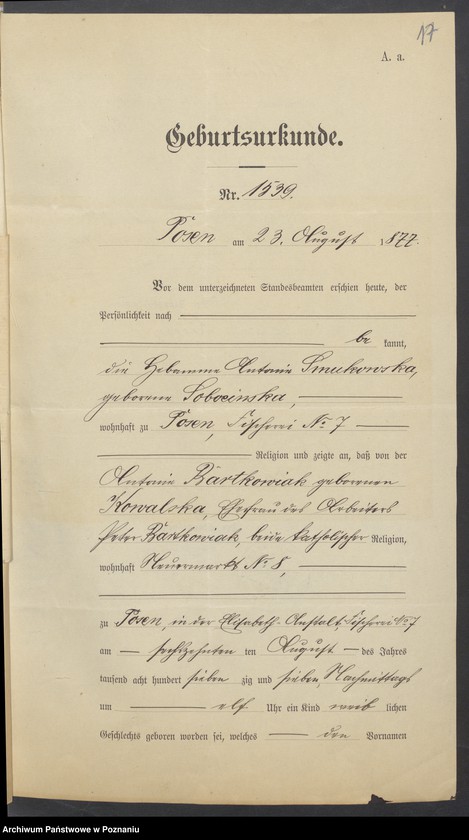 17
A. a.
Geburtsurkunde.
Nr. 1539.
Posen am 23. August 1877.
Vor dem unterzeichneten Standesbeamten erschien heute, der
Persönlichkeit nach
be kannt,
die Hebamme Antonie Smukowska,
geborene Sobocinska,
wohnhaft zu Posen, Fischerei No 7
Religion und zeigte an, daß von der
Antonie Bartkowiak geborenen
Kowalska, Ehefrau des Arbeiters
Peter Bartkowiak, beide katholischer Religion,
wohnhaft Neuermarkt No 8,
zu Posen, in der Elisabeth-Anstalt, Fischerei No 7
am sechszehnten ten August des Jahres
tausend acht hundert sieben zig und sieben, Nachmittags
um elf Uhr ein Kind weib lichen
Geschlechts geboren worden sei, welches den Vornamen
Archiwum Państwowe w Poznaniu